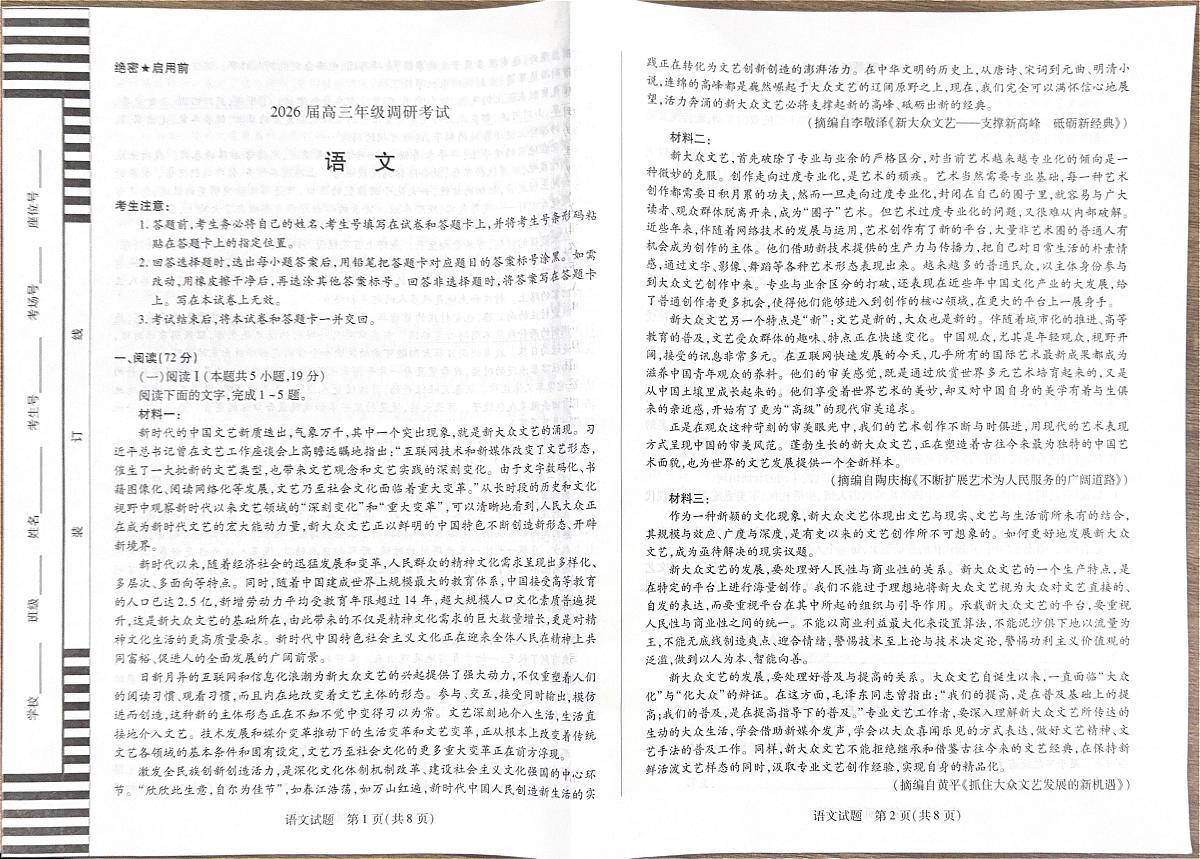 学校
班级
姓名
考生号
考场号
座位号
装
订
线
绝密★启用前
2026届高三年级调研考试
语 文
考生注意:
1.答题前,考生务必将自己的姓名、考生号填写在试卷和答题卡上,并将考生号条形码粘
贴在答题卡上的指定位置。
2.回答选择题时,选出每小题答案后,用铅笔把答题卡对应题目的答案标号涂黑。如需
改动,用橡皮擦干净后,再选涂其他答案标号。回答非选择题时,将答案写在答题卡
上。写在本试卷上无效。
3.考试结束后,将本试卷和答题卡一并交回。
一、阅读(72分)
(一)阅读Ⅰ(本题共5小题,19分)
阅读下面的文字,完成1~5题。
材料一:
新时代的中国文艺新质迭出,气象万千,其中一个突出现象,就是新大众文艺的涌现。习
近平总书记曾在文艺工作座谈会上高瞻远瞩地指出:“互联网技术和新媒体改变了文艺形态,
催生了一大批新的文艺类型,也带来文艺观念和文艺实践的深刻变化。由于文字数码化、书
籍图像化、阅读网络化等发展,文艺乃至社会文化面临着重大变革。”从长时段的历史和文化
视野中观察新时代以来文艺领域的“深刻变化”和“重大变革”,可以清晰地看到,人民大众正
在成为新时代文艺的宏大能动力量,新大众文艺正以鲜明的中国特色不断创造新形态、开辟
新境界。
新时代以来,随着经济社会的迅猛发展和变革,人民群众的精神文化需求呈现出多样化、
多层次、多面向等特点。同时,随着中国建成世界上规模最大的教育体系,中国接受高等教育
的人口已达2.5亿,新增劳动力平均受教育年限超过14年,超大规模人口文化素质普遍提
升,这是新大众文艺的基础所在,由此带来的不仅是精神文化需求的巨大数量增长,更是对精
神文化生活的更高质量要求。新时代中国特色社会主义文化正在迎来全体人民在精神上共
同富裕、促进人的全面发展的广阔前景。
日新月异的互联网和信息化浪潮为新大众文艺的兴起提供了强大动力,不仅重塑着人们
的阅读习惯、观看习惯,而且内在地改变着文艺主体的形态。参与、交互,接受同时输出,模仿
进而创造,这种新的主体形态正在不知不觉中变得习以为常。文艺深刻地介入生活,生活直
接地介入文艺。技术发展和媒介变革推动下的生活变革和文艺变革,正从根本上改变着传统
文艺各领域的基本条件和固有设定,文艺乃至社会文化的更多重大变革正在前方浮现。
激发全民族创新创造活力,是深化文化体制机制改革、建设社会主义文化强国的中心环
节。“欣欣此生意,自尔为佳节”,如春江浩荡,如万山红遍,新时代中国人民创造新生活的实
语文试题 第1页(共8页)
践正在转化为文艺创新创造的澎湃活力。在中华文明的历史上,从唐诗、宋词到元曲、明清小
说,连绵的高峰都是巍然崛起于大众文艺的辽阔原野之上,现在,我们完全可以满怀信心地展
望,活力奔涌的新大众文艺必将支撑起新的高峰、砥砺出新的经典。
(摘编自李敬泽《新大众文艺——支撑新高峰 砥砺新经典》)
材料二:
新大众文艺,首先破除了专业与业余的严格区分,对当前艺术越来越专业化的倾向是一
种微妙的克服。创作走向过度专业化,是艺术的顽疾。艺术当然需要专业基础,每一种艺术
创作都需要日积月累的功夫,然而一旦走向过度专业化,封闭在自己的圈子里,就容易与广大
读者、观众群体脱离开来,成为“圈子”艺术。但艺术过度专业化的问题,又很难从内部破解。
近些年来,伴随着网络技术的发展与运用,艺术创作有了新的平台,大量非艺术圈的普通人有
机会成为创作的主体。他们借助新技术提供的生产力与传播力,把自己对日常生活的朴素情
感,通过文字、影像、舞蹈等各种艺术形态表现出来。越来越多的普通民众,以主体身份参与
到大众文艺创作中来。专业与业余区分的打破,还表现在近些年中国文化产业的大发展,给
了普通创作者更多机会,使得他们能够进入到创作的核心领域,在更大的平台上一展身手。
新大众文艺另一个特点是“新”:文艺是新的,大众也是新的。伴随着城市化的推进、高等
教育的普及,文艺受众群体的趣味、特点正在快速变化。中国观众,尤其是年轻观众,视野开
阔,接受的讯息非常多元。在互联网快速发展的今天,几乎所有的国际艺术最新成果都成为
滋养中国青年观众的养料。他们的审美感觉,既是通过欣赏世界多元艺术培育起来的,又是
从中国土壤里成长起来的。他们享受着世界艺术的美妙,却又对中国自身的美学有着与生俱
来的亲近感,开始有了更为“高级”的现代审美追求。
正是在观众这种苛刻的审美眼光中,我们的艺术创作不断与时俱进,用现代的艺术表现
方式呈现中国的审美风范。蓬勃生长的新大众文艺,正在塑造着古往今来最为独特的中国艺
术面貌,也为世界的文艺发展提供一个全新样本。
(摘编自陶庆梅《不断扩展艺术为人民服务的广阔道路》)
材料三:
作为一种新颖的文化现象,新大众文艺体现出文艺与现实、文艺与生活前所未有的结合,
其规模与效应、广度与深度,是有史以来的文艺创作所不可想象的。如何更好地发展新大众
文艺,成为亟待解决的现实议题。
新大众文艺的发展,要处理好人民性与商业性的关系。新大众文艺的一个生产特点,是
在特定的平台上进行海量创作。我们不能过于理想地将新大众文艺视为大众对文艺直接的、
自发的表达,而要重视平台在其中所起的组织与引导作用。承载新大众文艺的平台,要重视
人民性与商业性之间的统一。不能以商业利益最大化来设置算法,不能泥沙俱下地以流量为
王,不能无底线制造爽点、迎合情绪,警惕技术至上论与技术决定论,警惕功利主义价值观的
泛滥,做到以人为本、智能向善。
新大众文艺的发展,要处理好普及与提高的关系。大众文艺自诞生以来,一直面临“大众
化”与“化大众”的辩证。在这方面,毛泽东同志曾指出:“我们的提高,是在普及基础上的提
高;我们的普及,是在提高指导下的普及。”专业文艺工作者,要深入理解新大众文艺所传达的
生动的大众生活,学会借助新媒介发声,学会以大众喜闻乐见的方式表达,做好文艺精神、文
艺手法的普及工作。同样,新大众文艺不能拒绝继承和借鉴古往今来的文艺经典,在保持新
鲜活泼文艺样态的同时,汲取专业文艺创作经验,实现自身的精品化。
(摘编自黄平《抓住大众文艺发展的新机遇》)
语文试题 第2页(共8页)